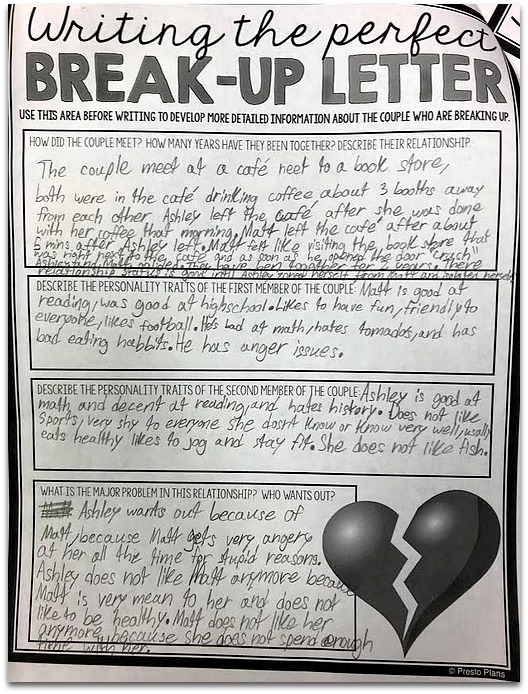 Writing the perfect
BREAK-UP LETTER
USE THIS AREA BEFORE WRITING TO DEVELOP MORE DETAILED INFORMATION ABOUT THE COUPLE WHO ARE BREAKING UP.
HOW DID THE COUPLE MEET? HOW MANY YEARS HAVE THEY BEEN TOGETHER? DESCRIBE THEIR RELATIONSHIP.
The couple meet at a café neet to a book store,
both were in the café drinking coffee about 3 booths away
from each other. Ashley left the café after she was done
with her coffee that morning. Matt left the café after about
5 mins after Ashley left. Matt felt like visiting the book store that
was right next to the café and as soon as he opened the door "crush"
Ashley and him They have been together for 2 years. There
relationship status is good until Ashley from Matt and
DESCRIBE THE PERSONALITY TRAITS OF THE FIRST MEMBER OF THE COUPLE: Matt is good at
reading, was good at highschool. Likes to have fun, friendly to
everyone, likes football. He's bad at math, hates tornados, and has
bad eating habbits. He has anger issues.
DESCRIBE THE PERSONALITY TRAITS OF THE SECOND MEMBER OF THE COUPLE: Ashley is good at
math, and decent at reading, and hates history. Does not like
Sports, very shy to everyone she dosn't know or know very well, usally
eats healthy likes to jog and stay fit. She does not like fish.
WHAT IS THE MAJOR PROBLEM IN THIS RELATIONSHIP? WHO WANTS OUT?
Ashley wants out because of
Matt, because Matt gets very angery
at her all the time for stupid reasons.
Ashley does not like Matt anymore because
Matt is very mean to her and does not
like to be healthy. Matt does not like her
anymore, because she does not spend enough
time with her.
© Presto Plans